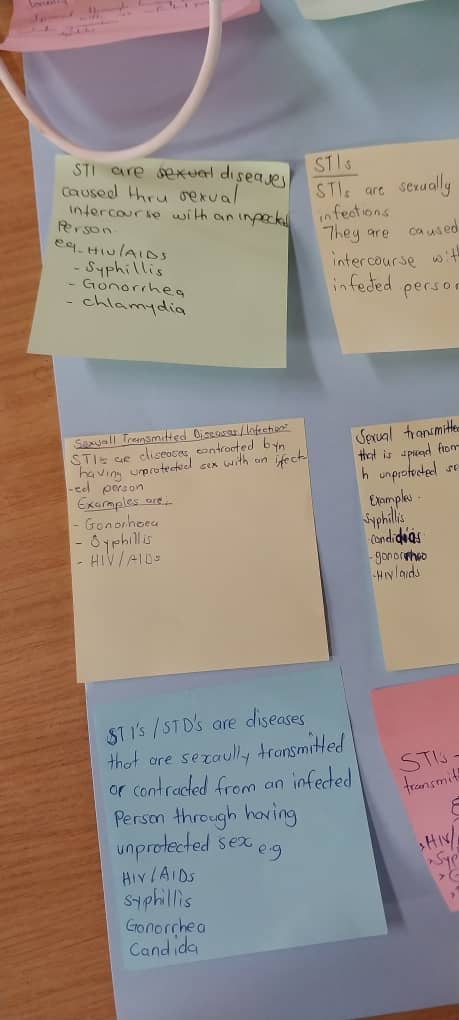 STI are sexual diseases
caused thru sexual
intercourse with an
Person.
eg - HIV/AIDS
- Syphillis
- Gonorrhea
- Chlamydia
STIs
STIs are sexually
infections
They are caused
intercourse wit
infected person
Sexuall Transmitted Diseases/Infections
STIs are diseases contracted byn
having unprotected sex with an ifect
-ed person
Examples are,
- Gonorhoea
- Syphillis
- HIV/AIDS
Sexual transmitte
that is spread from
h unprotected se
Examples.
Syphillis
-candidias
-gonorrhea
-HIV/aids
STI's/STD's are diseases
that are sexaully transmitted
or contracted from an infected
Person through having
unprotected sex e.g
HIV/AIDS
Syphillis
Gonorrhea
Candida
STIs
transmit
HIV/
Syp